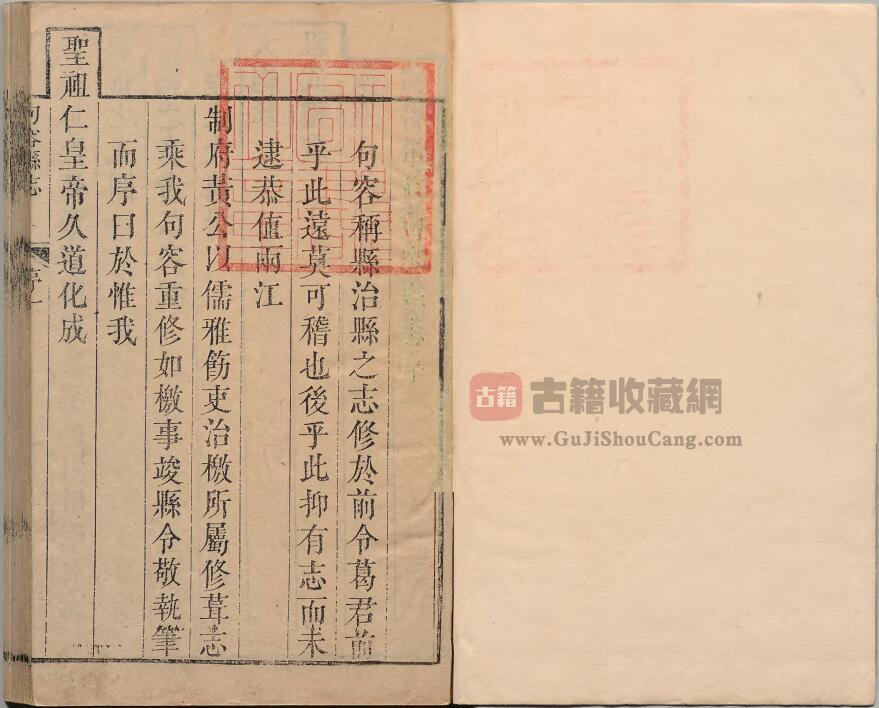 句容稱縣治縣之志修於前令葛君前
乎此遠莫可稽也後乎此抑有志而未
逮恭值兩江
制府黃公以儒雅飭吏治檄所屬修葺志
乘我句容重修如檄事竣縣令敬執筆
而序曰於惟我
聖祖仁皇帝久道化成
句容縣志
序一
古籍
古籍收藏網
www.GuJiShouCang.com